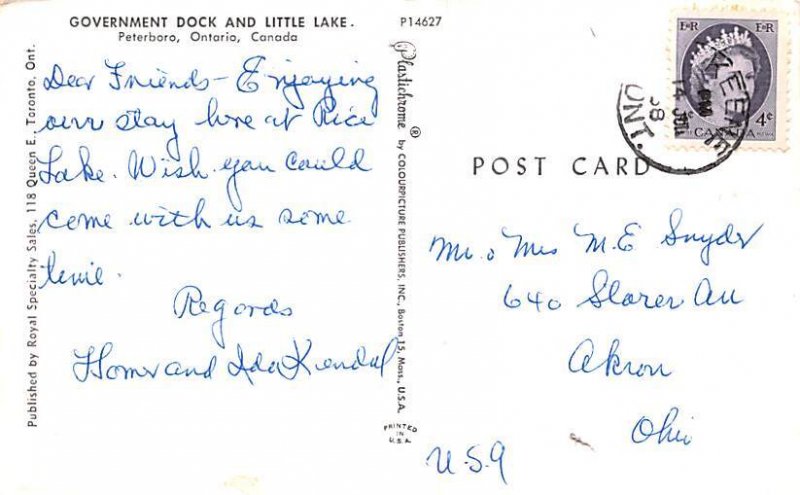 GOVERNMENT DOCK AND LITTLE LAKE.
Peterboro, Ontario, Canada
P14627
Dear Friends - Enjoying
our stay here at Rice
Lake. Wish you could
come with us some
time.
Regards
Homer and Ida Kendal
Published by Royal Specialty Sales, 118 Queen E., Toronto, Ont.
Plastichrome ® by COLOURPICTURE PUBLISHERS, INC., Boston 15, Mass., U.S.A.
PRINTED
IN
U.S.A.
POST CARD
E R E R
4¢ 4¢
CANADA
KEENE
PM
14 JUL
58
ONT.
Mr. & Mrs M.E. Snyder
640 Storer Av
Akron
Ohio
U.S.A